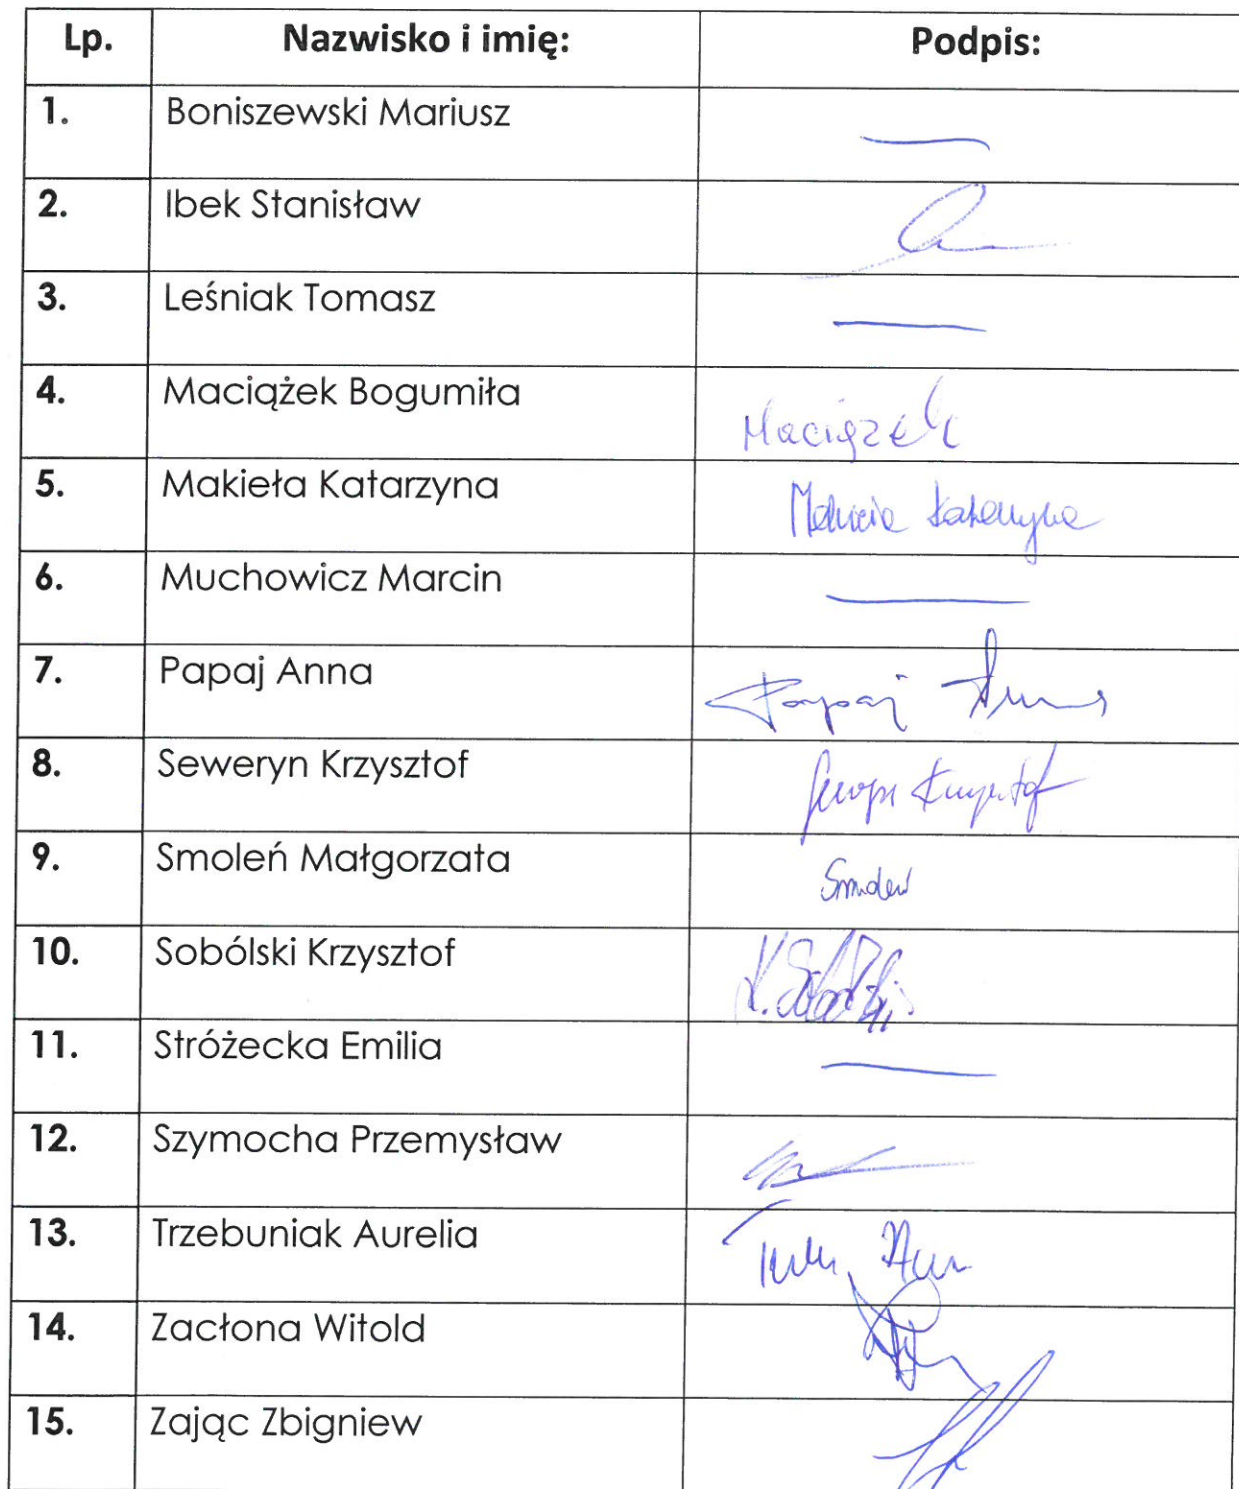 Lp. Nazwisko i imię: Podpis:
1. Boniszewski Mariusz
2. Ibek Stanisław
3. Leśniak Tomasz
4. Maciążek Bogumiła Maciążek
5. Makieła Katarzyna Makieła Katarzyna
6. Muchowicz Marcin
7. Papaj Anna Papaj Anna
8. Seweryn Krzysztof Seweryn Krzysztof
9. Smoleń Małgorzata Smoleń
10. Sobólski Krzysztof K. Sobólski
11. Stróżecka Emilia
12. Szymocha Przemysław
13. Trzebuniak Aurelia
14. Zacłona Witold
15. Zając Zbigniew